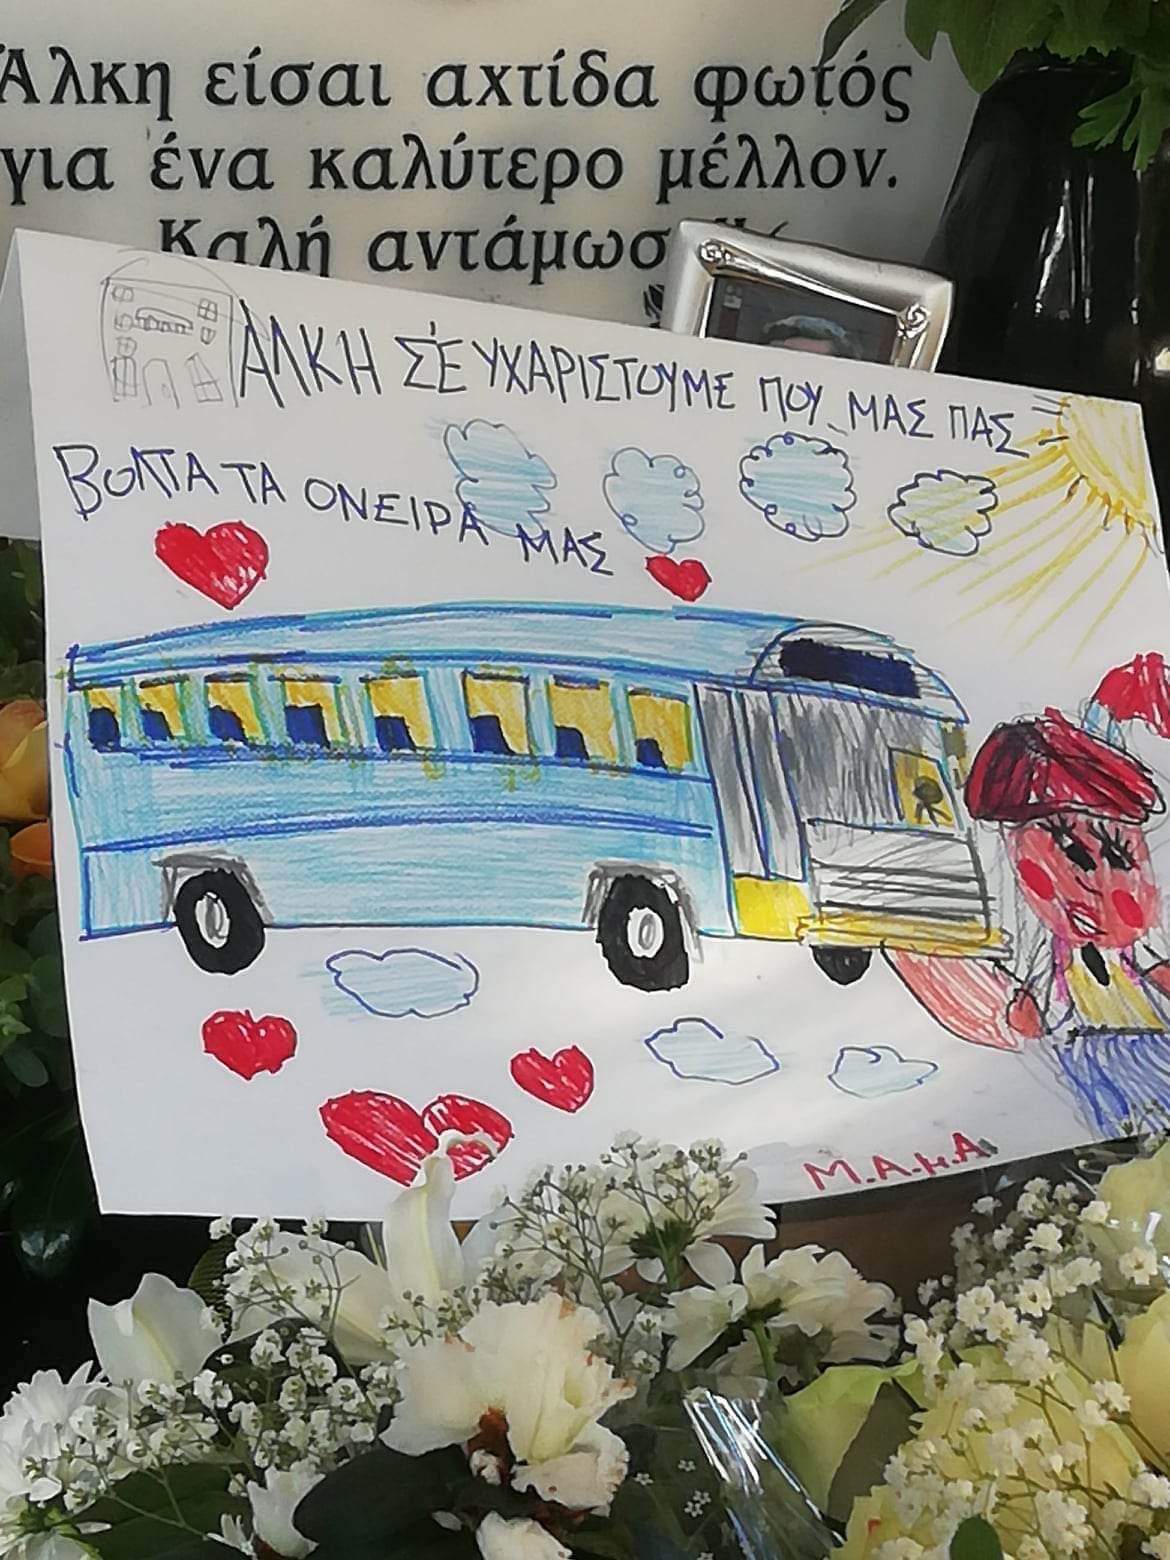 Άλκη είσαι αχτίδα φωτός
για ένα καλύτερο μέλλον.
Καλή
ΑΛΚΗ Σ'ΕΥΧΑΡΙΣΤΟΥΜΕ ΠΟΥ ΜΑΣ ΠΑΣ
ΒΟΛΤΑ ΤΑ ΟΝΕΙΡΑ ΜΑΣ
Μ.Α.Μ.Α.